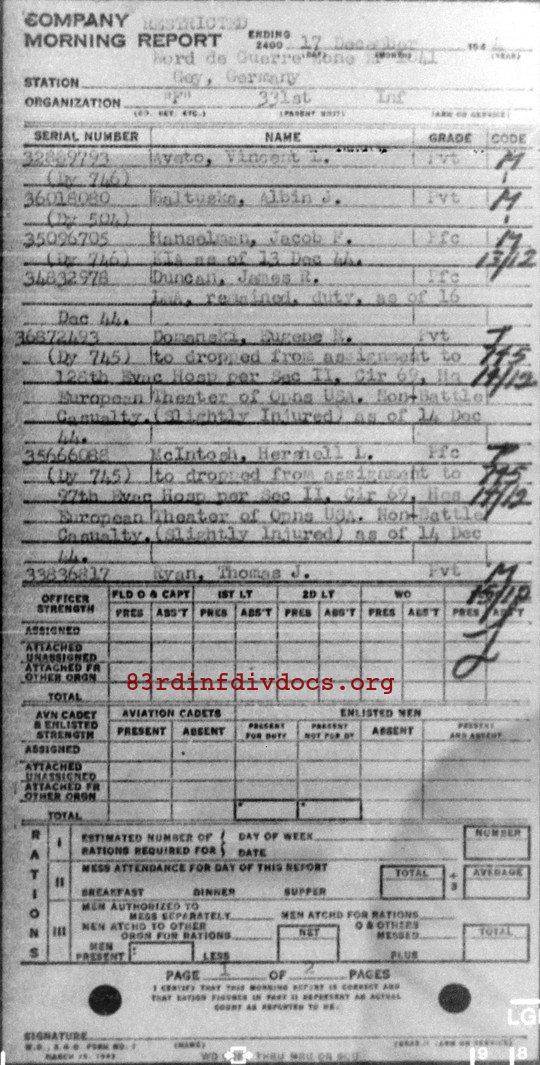 COMPANY RESTRICTED
MORNING REPORT ENDING 2400 17 December 1944
(DAY) (MONTH) (YEAR)
Nord de Guerre Zone
STATION Gey, Germany
ORGANIZATION "F" 331st Inf
(CO. DET. ETC.) (PARENT UNIT) (ARM OR SERVICE)
SERIAL NUMBER NAME GRADE CODE
32889793 Aveto, Vincent L. Pvt M
(Dy 746)
36018080 Baltuska, Albin J. Pvt M
(Dy 504)
35096705 Hanselman, Jacob F. Pfc M
(Dy 746) KIA as of 13 Dec 44. 13/12
34832978 Duncan, James R. Pfc
LWA, remained, duty, as of 16
Dec 44.
36872493 Domanski, Eugene R. Pvt
(Dy 745) to dropped from assignment to 745
128th Evac Hosp per Sec II, Cir 69, Hq
European Theater of Opns USA. Non-Battle
Casualty. (Slightly Injured) as of 14 Dec
44.
35666088 McIntosh, Hershell L. Pfc
(Dy 745) to dropped from assignment to 745
97th Evac Hosp per Sec II, Cir 69, Hqs
European Theater of Opns USA. Non-Battle
Casualty. (Slightly Injured) as of 14 Dec
44.
33836817 Ryan, Thomas J. Pvt M
OFFICER STRENGTH FLD O & CAPT 1ST LT 2D LT WO
PRES ABS'T PRES ABS'T PRES ABS'T PRES ABS'T PRES ABS'T
ASSIGNED
ATTACHED UNASSIGNED
ATTACHED FR OTHER ORGN
TOTAL
83rdinfdivdocs.org
AVN CADET & ENLISTED STRENGTH AVIATION CADETS ENLISTED MEN
PRESENT ABSENT PRESENT FOR DUTY PRESENT NOT FOR DY ABSENT PRESENT AND ABSENT
ASSIGNED
ATTACHED UNASSIGNED
ATTACHED FR OTHER ORGN
TOTAL
RATIONS
I ESTIMATED NUMBER OF RATIONS REQUIRED FOR { DAY OF WEEK NUMBER
DATE
II MESS ATTENDANCE FOR DAY OF THIS REPORT TOTAL ÷ 3 AVERAGE
BREAKFAST DINNER SUPPER
III MEN AUTHORIZED TO MESS SEPARATELY MEN ATCHD FOR RATIONS
MEN ATCHD TO OTHER ORGN FOR RATIONS NET O & OTHERS MESSED TOTAL
MEN PRESENT LESS PLUS
PAGE 1 OF 2 PAGES
I CERTIFY THAT THIS MORNING REPORT IS CORRECT AND
THAT RATION FIGURES IN PART II REPRESENT AN ACTUAL
COUNT AS REPORTED TO ME.
SIGNATURE
W.D., A.G.O. FORM NO. 1 (NAME) (GRADE) (ARM OR SERVICE)
MARCH 15, 1943
9 8